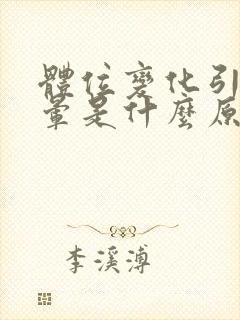 體位變化引
暈是什麼原
李溪溥